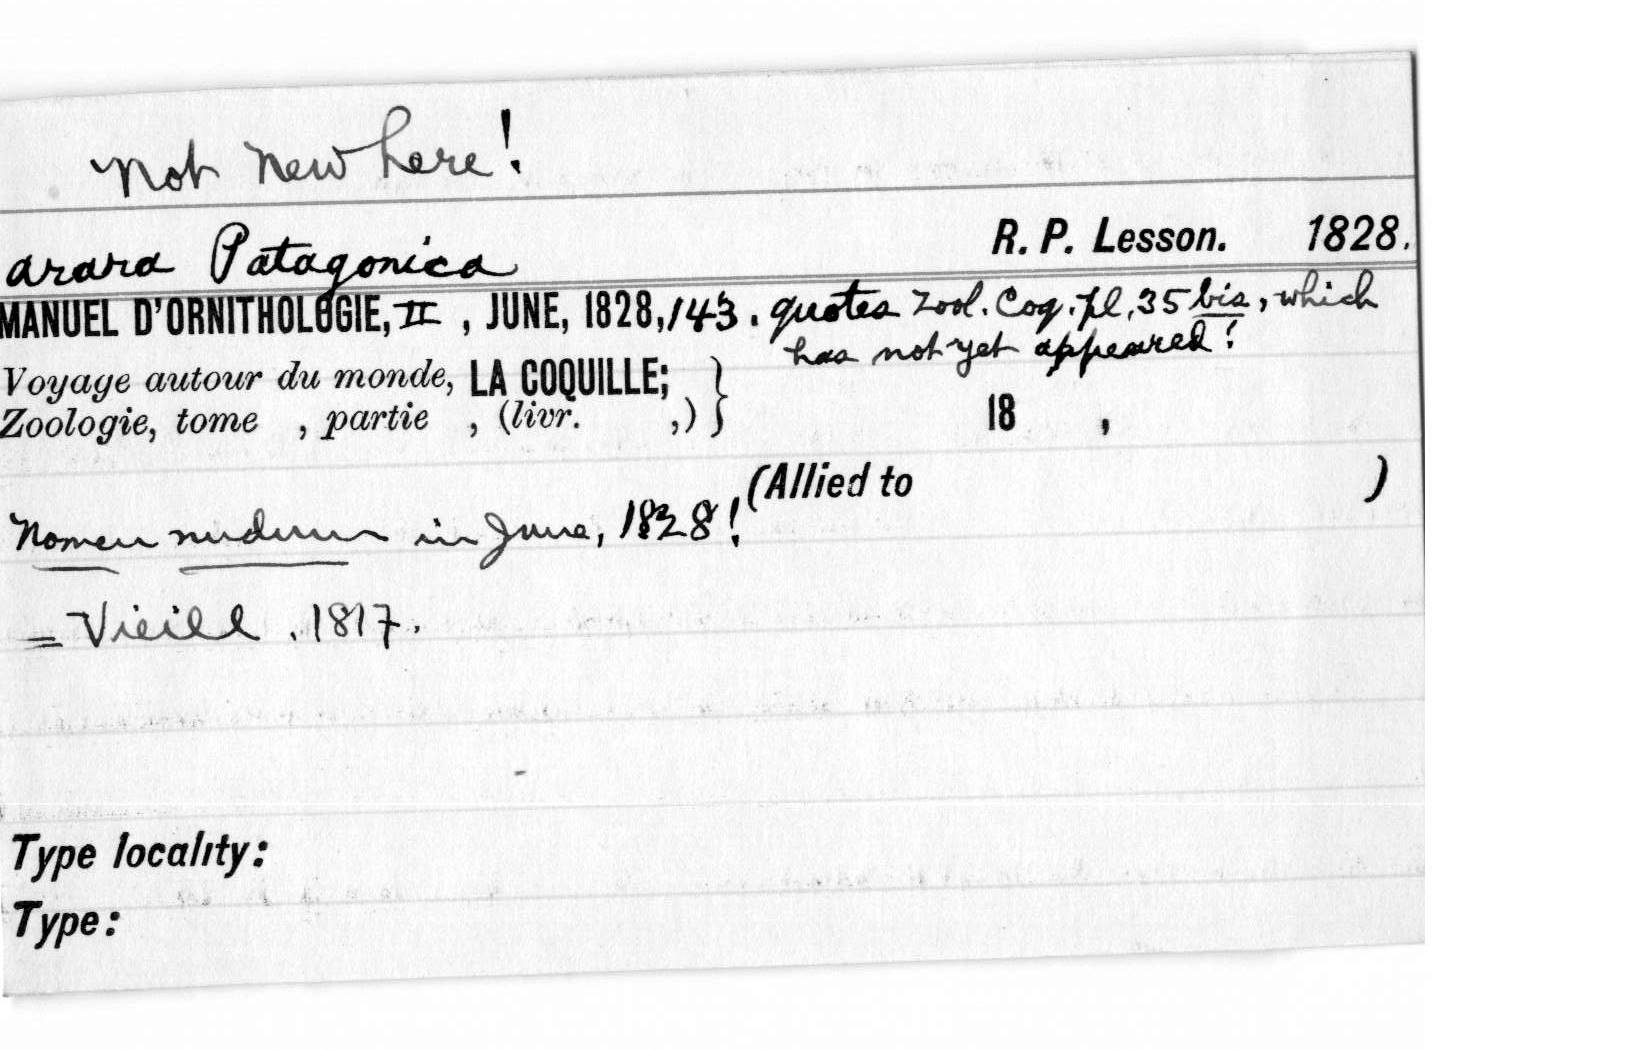 Not New here!
Arara Patagonica R. P. Lesson. 1828.
MANUEL D'ORNITHOLOGIE, II , JUNE, 1828, 143. quotes Zool. Coq. pl, 35 bis, which
has not yet appeared!
Voyage autour du monde, LA COQUILLE;
Zoologie, tome , partie , (livr. ,) } 18 ,
(Allied to )
Nomen nudum in June, 1828!
= Vieill. 1817.
Type locality:
Type: